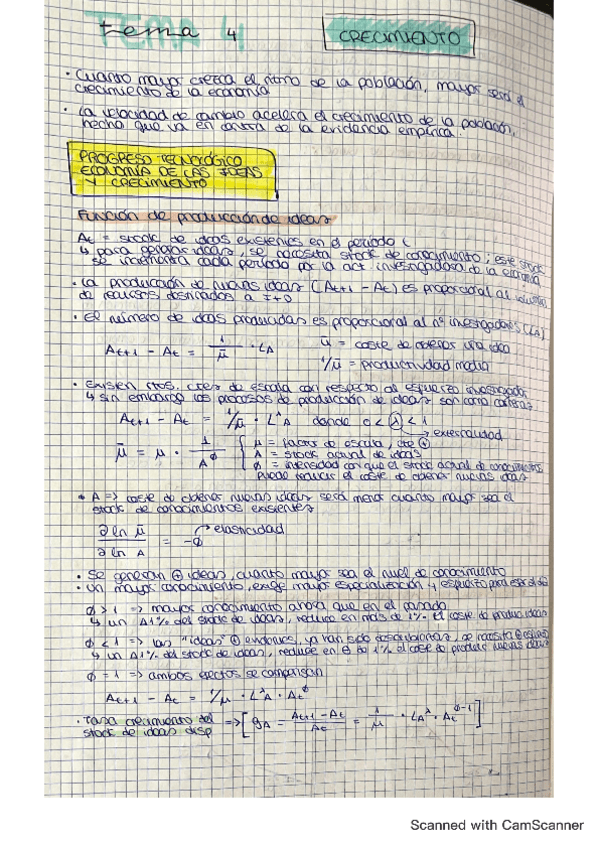 tema 4
TEMA 4
CRECIMIENTO
• Cuanto mayor crezca el ritmo de la población, mayor será el
crecimiento de la economía
• La velocidad de cambio acelera el crecimiento de la población,
hecho que va en contra de la evidencia empírica.
PROGRESO TECNOLÓGICO
ECONOMÍA DE LAS IDEAS
Y CRECIMIENTO
Función de producción de ideas
At = stock de ideas existentes en el periodo t
↳ para generar ideas, se necesita stock de conocimiento; este stock
se incrementa cada periodo por la act investigadora de la economía
• La producción de nuevas ideas (At+1 - At) es proporcional al volumen
de recursos destinados a I+D
• El número de ideas producidas es proporcional al nº investigadores (LA)
At+1 - At = 1/μ̄ · LA
μ̄ = coste de obtener una idea
1/μ̄ = productividad media
• Existen rtos. crec de escala con respecto al esfuerzo investigador
↳ sin embargo los procesos de producción de ideas son como carreras
At+1 - At = 1/μ̄ · L^λ A donde 0 < λ < 1
→ externalidad
μ̄ = μ · 1/A^ϕ
μ = factor de escala, cte ⊕
A = stock actual de ideas
ϕ = intensidad con que el stock actual de conocimientos
puede reducir el coste de obtener nuevas ideas
• A => coste de obtener nuevas ideas será menor cuanto mayor sea el
stock de conocimientos existentes
∂ ln μ̄ / ∂ ln A = -ϕ → elasticidad
• Se generan ⊕ ideas, cuanto mayor sea el nivel de conocimiento
• Un mayor conocimiento, exige mayor especialización y esfuerzo para
ϕ > 1 => mayor conocimiento ahora que en el pasado
↳ un Δ1% del stock de ideas, reduce en más de 1% el coste de produc ideas
ϕ < 1 => las "ideas" ⊕ ya han sido descubiertas, se necesita ⊕ esfuerzo
↳ un Δ1% del stock de ideas, reduce en ⊖ de 1% el coste de producir nuevas ideas
ϕ = 1 => ambos efectos se compensan
At+1 - At = 1/μ · L^λ A · At^ϕ
• Tasa crecimiento del
stock de ideas disp => [ gA = At+1 - At / At = 1/μ · LA^λ · At^ϕ-1 ]
Scanned with CamScanner